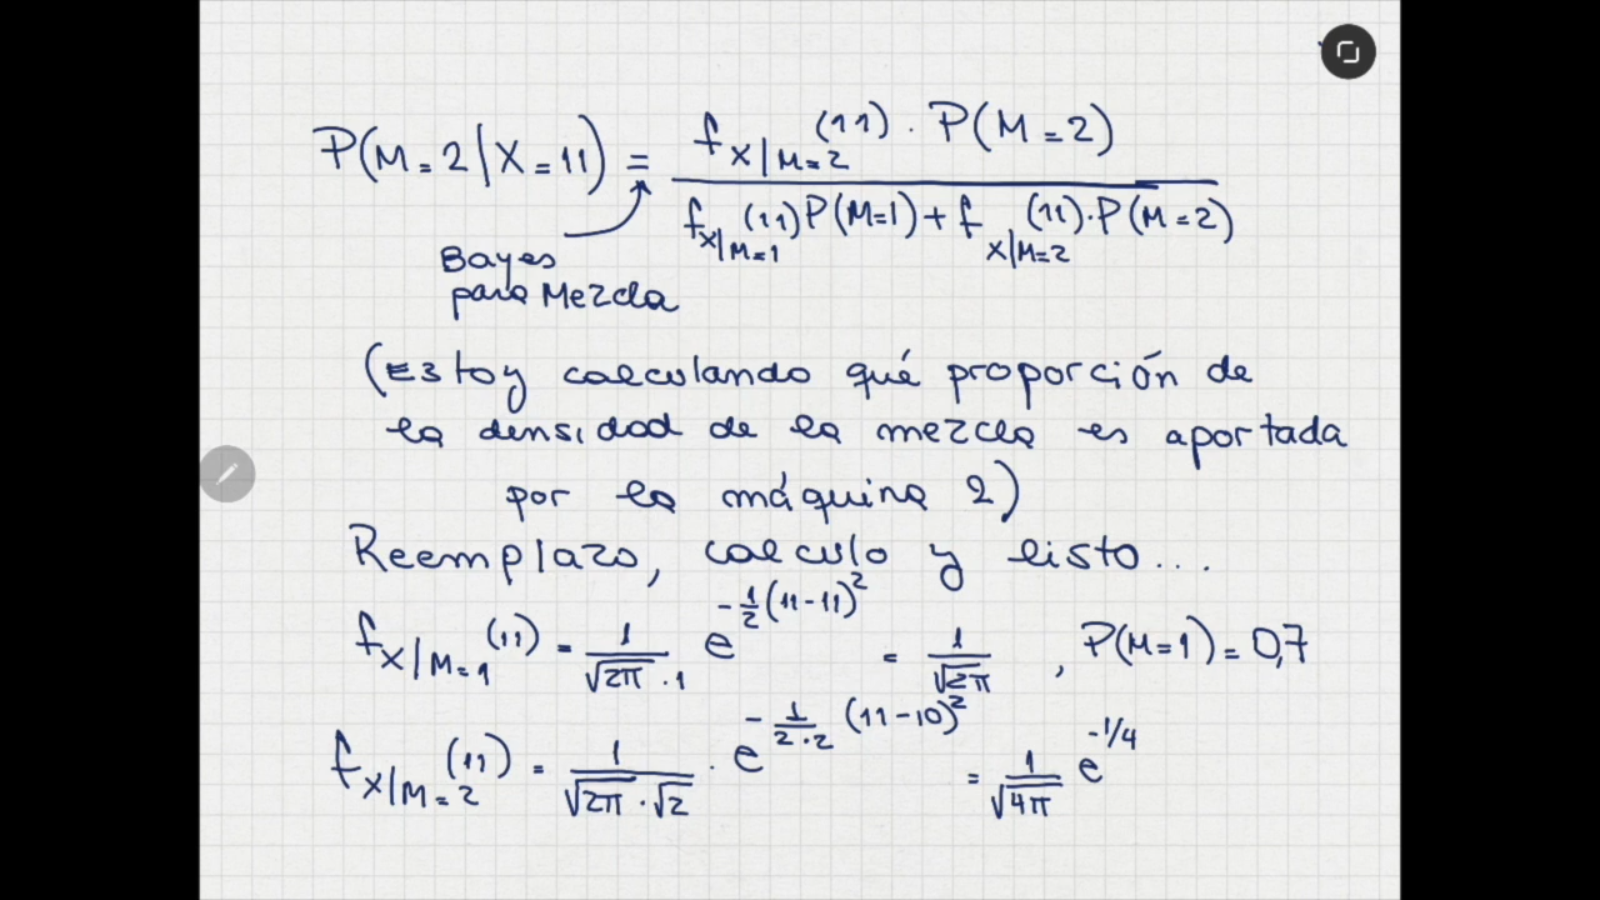 P(M=2|X=11) = \frac{f_{X|M=2}(11) \cdot P(M=2)}{f_{X|M=1}(11) P(M=1) + f_{X|M=2}(11) \cdot P(M=2)}
Bayes
para Mezcla
(Estoy calculando qué proporción de
la densidad de la mezcla es aportada
por la máquina 2)
Reemplazo, calculo y listo...
f_{X|M=1}(11) = \frac{1}{\sqrt{2π} \cdot 1} e^{-\frac{1}{2}(11-11)^2} = \frac{1}{\sqrt{2π}} , P(M=1) = 0,7
f_{X|M=2}(11) = \frac{1}{\sqrt{2π} \cdot \sqrt{2}} \cdot e^{-\frac{1}{2 \cdot 2}(11-10)^2} = \frac{1}{\sqrt{4π}} e^{-1/4}